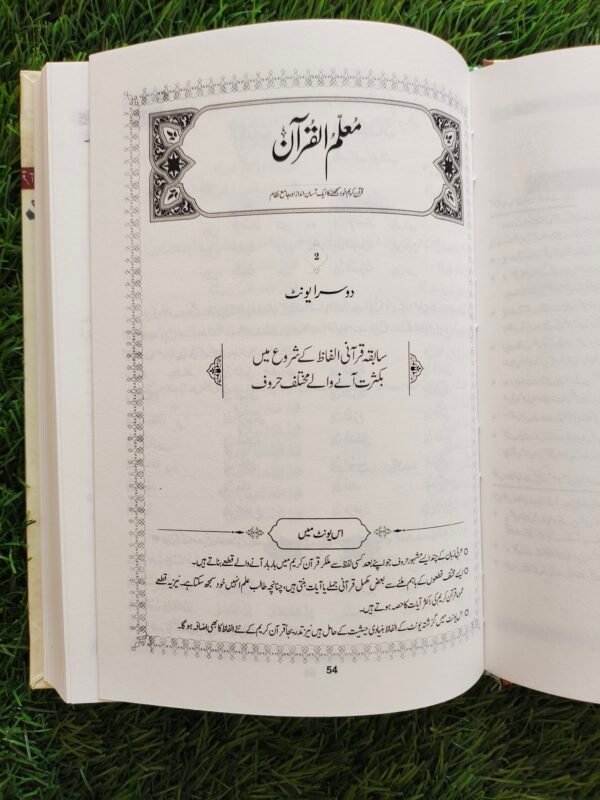 معلّم القرآن
قرآن کریم خود سمجھنے کا ایک آسان انداز اور جامع نظام
2
دوسرا یونٹ
سابقہ قرآنی الفاظ کے شروع میں
بکثرت آنے والے مختلف حروف
اس یونٹ میں
عربی زبان کے چند ایسے مشہور حروف جو اپنے بعد کسی لفظ سے ملکر قرآن کریم میں بار بار آنے والے قطعے بناتے ہیں۔
ایسے مختلف قطعوں کے باہم ملنے سے بعض مکمل قرآنی جملے یا آیات بنتی ہیں، چنانچہ طالب علم انہیں خود سمجھ سکتا ہے۔ نیز یہ قطعے
قرآن کریم کی اکثر آیات کا حصہ ہوتے ہیں۔
اس یونٹ میں گزشتہ یونٹ کے الفاظ بنیادی حیثیت کے حامل ہیں نیز بتدریجاً قرآن کریم کے نئے الفاظ کا بھی اضافہ ہوگا۔
54